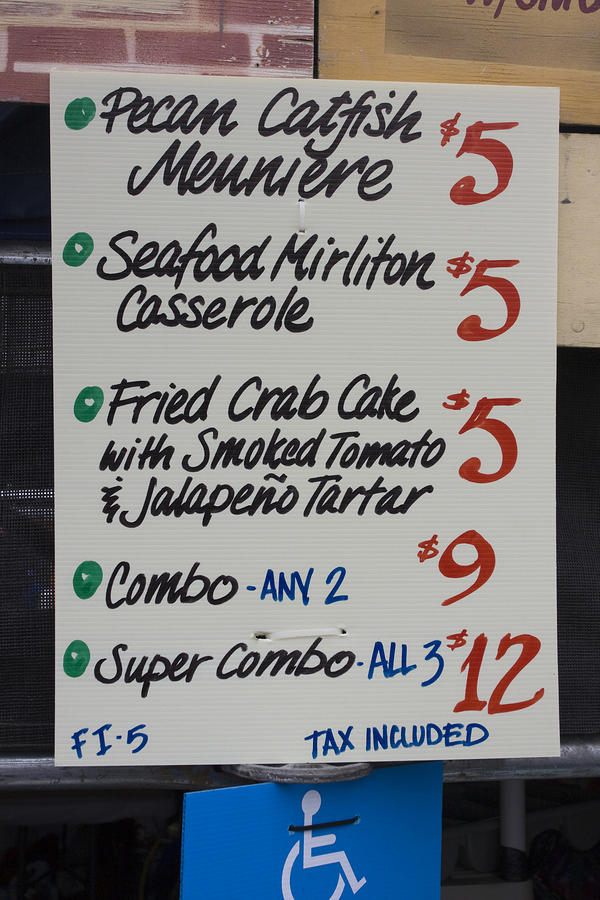 Pecan Catfish $5
Meuniere
Seafood Mirliton $5
Casserole
Fried Crab Cake $5
with Smoked Tomato
& Jalapeño Tartar
Combo - ANY 2 $9
Super Combo - ALL 3 $12
FI-5 TAX INCLUDED